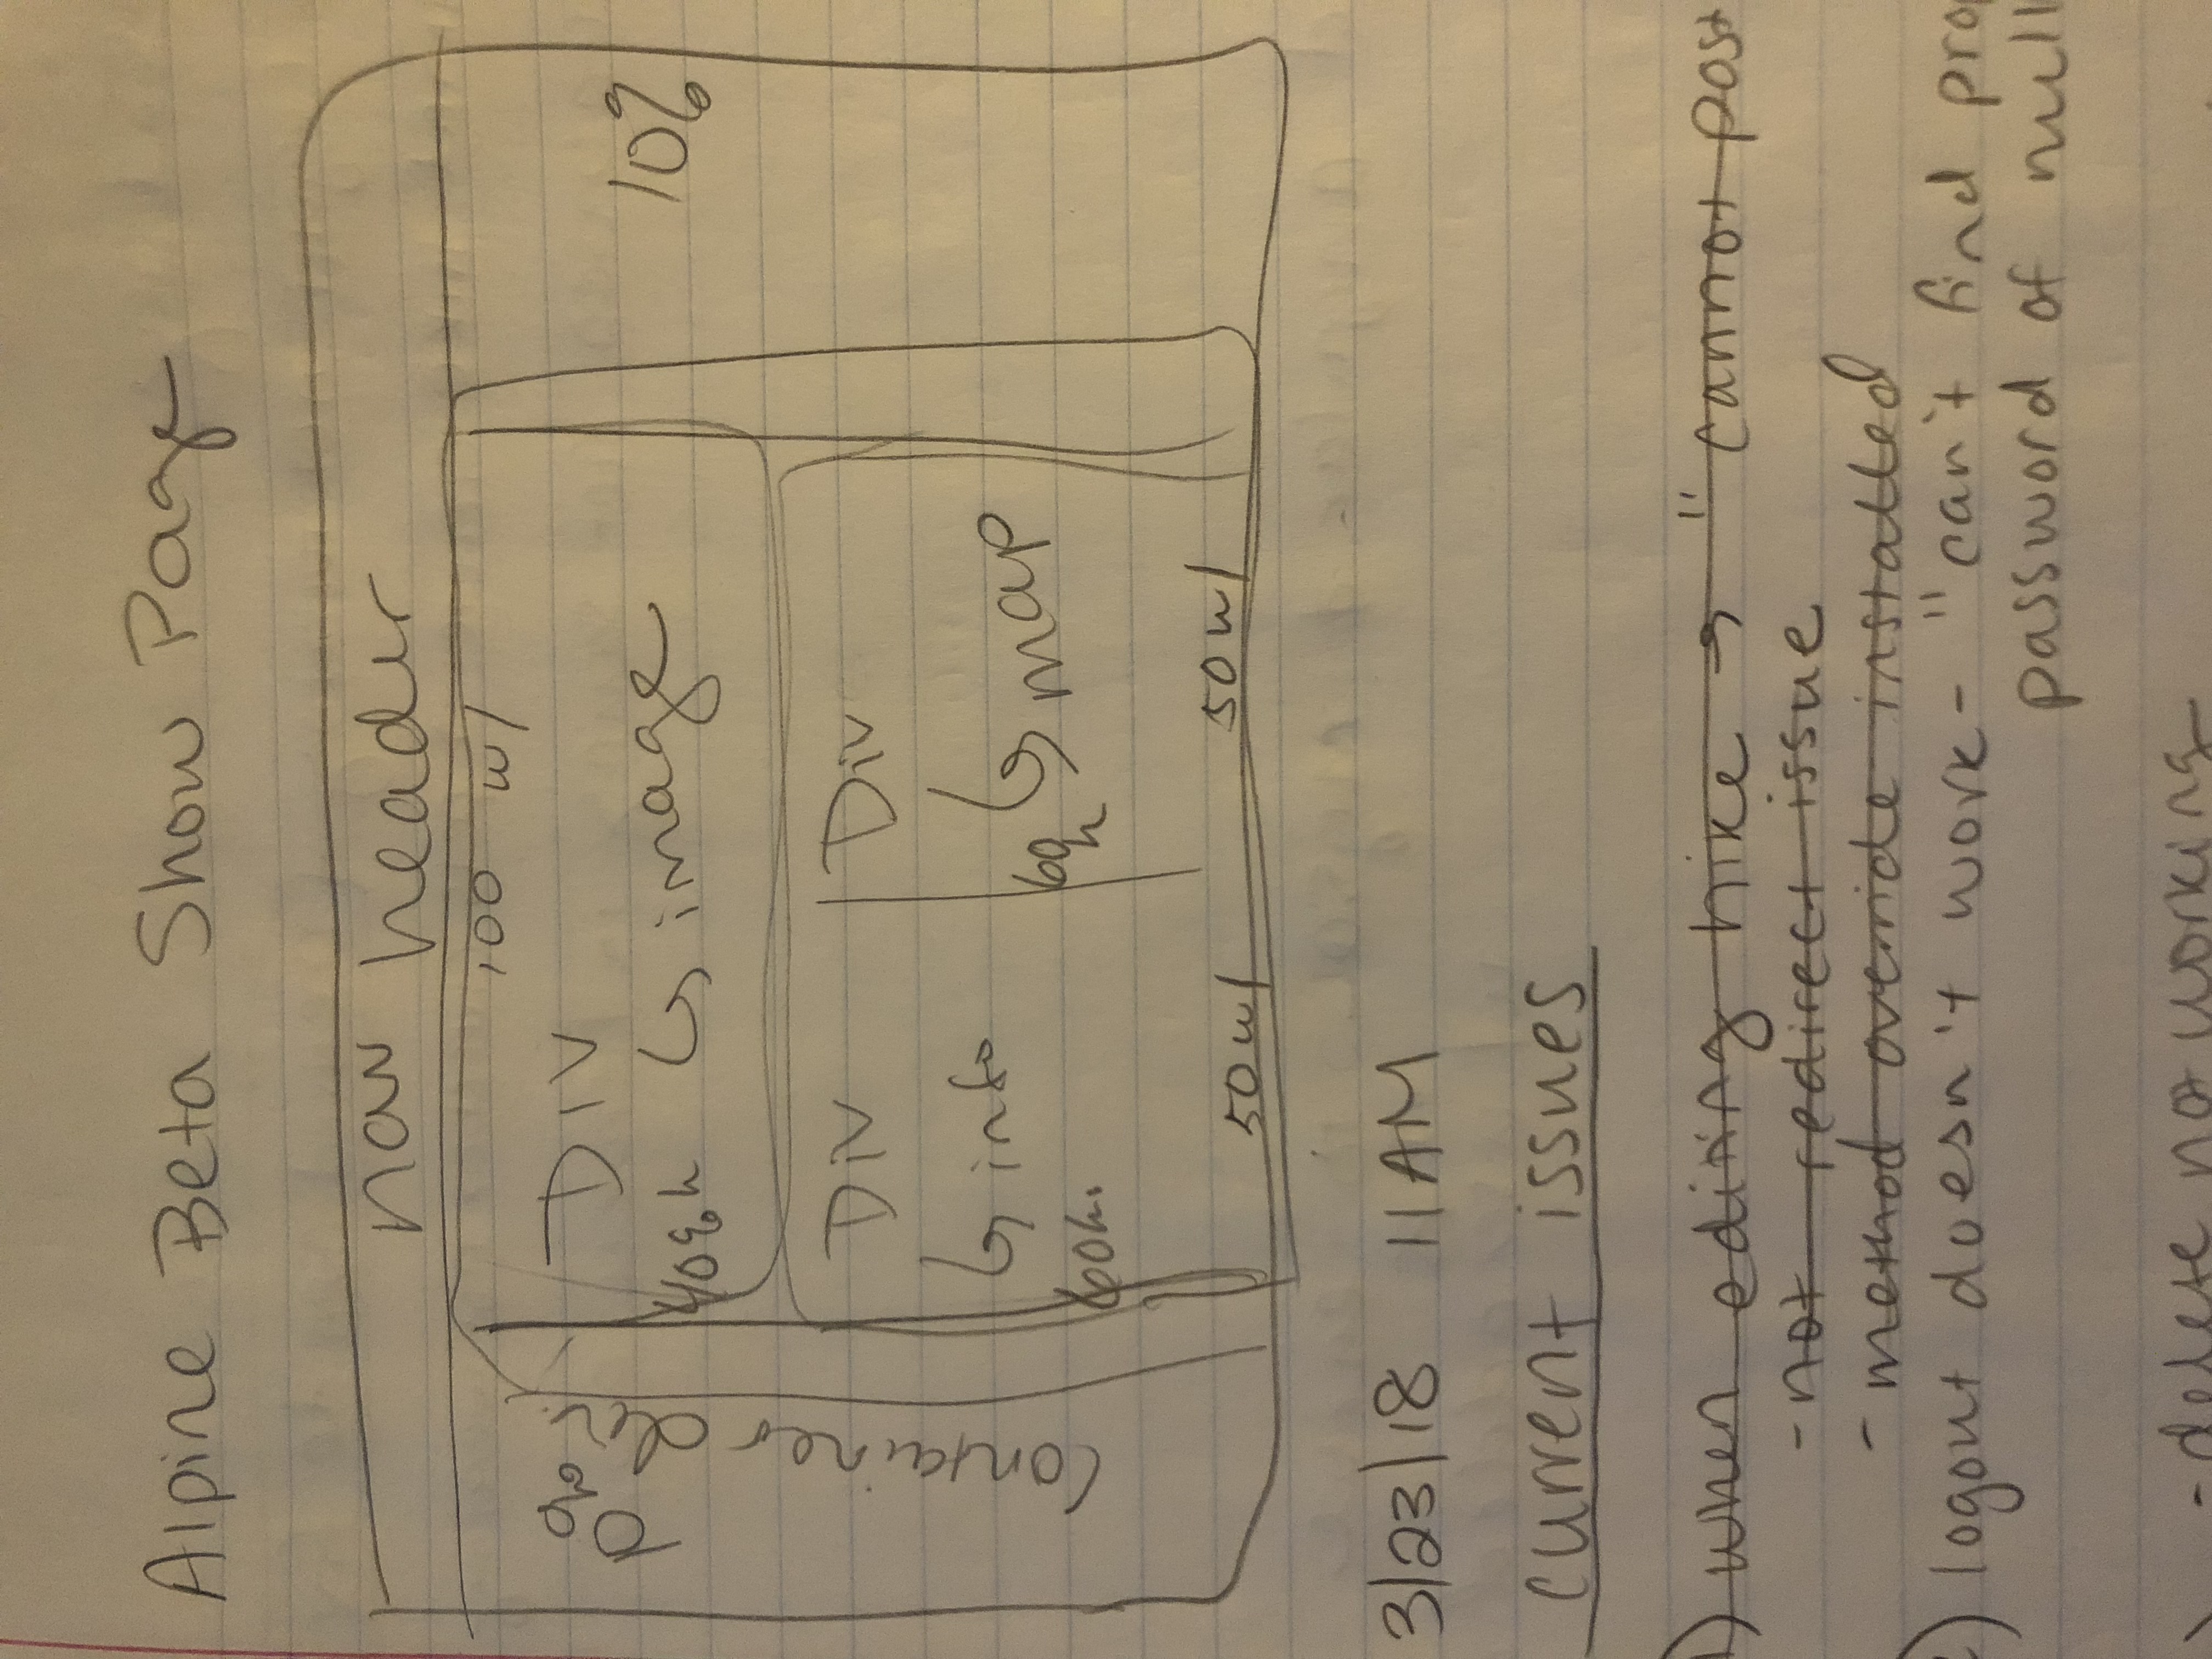 Alpine Beta Show Page
nav header
100 w/
10%
container div
DIV
40% h ↳ image
10%
Div
↳ info
60h.
Div
↳ map
60h
50 w/
50 w/
3/23/18 11AM
current issues
1) when editing hike → "cannot post
- not redirect issue
- method override installed
2) logout doesn't work - "can't find prop
password of null
- delete not working